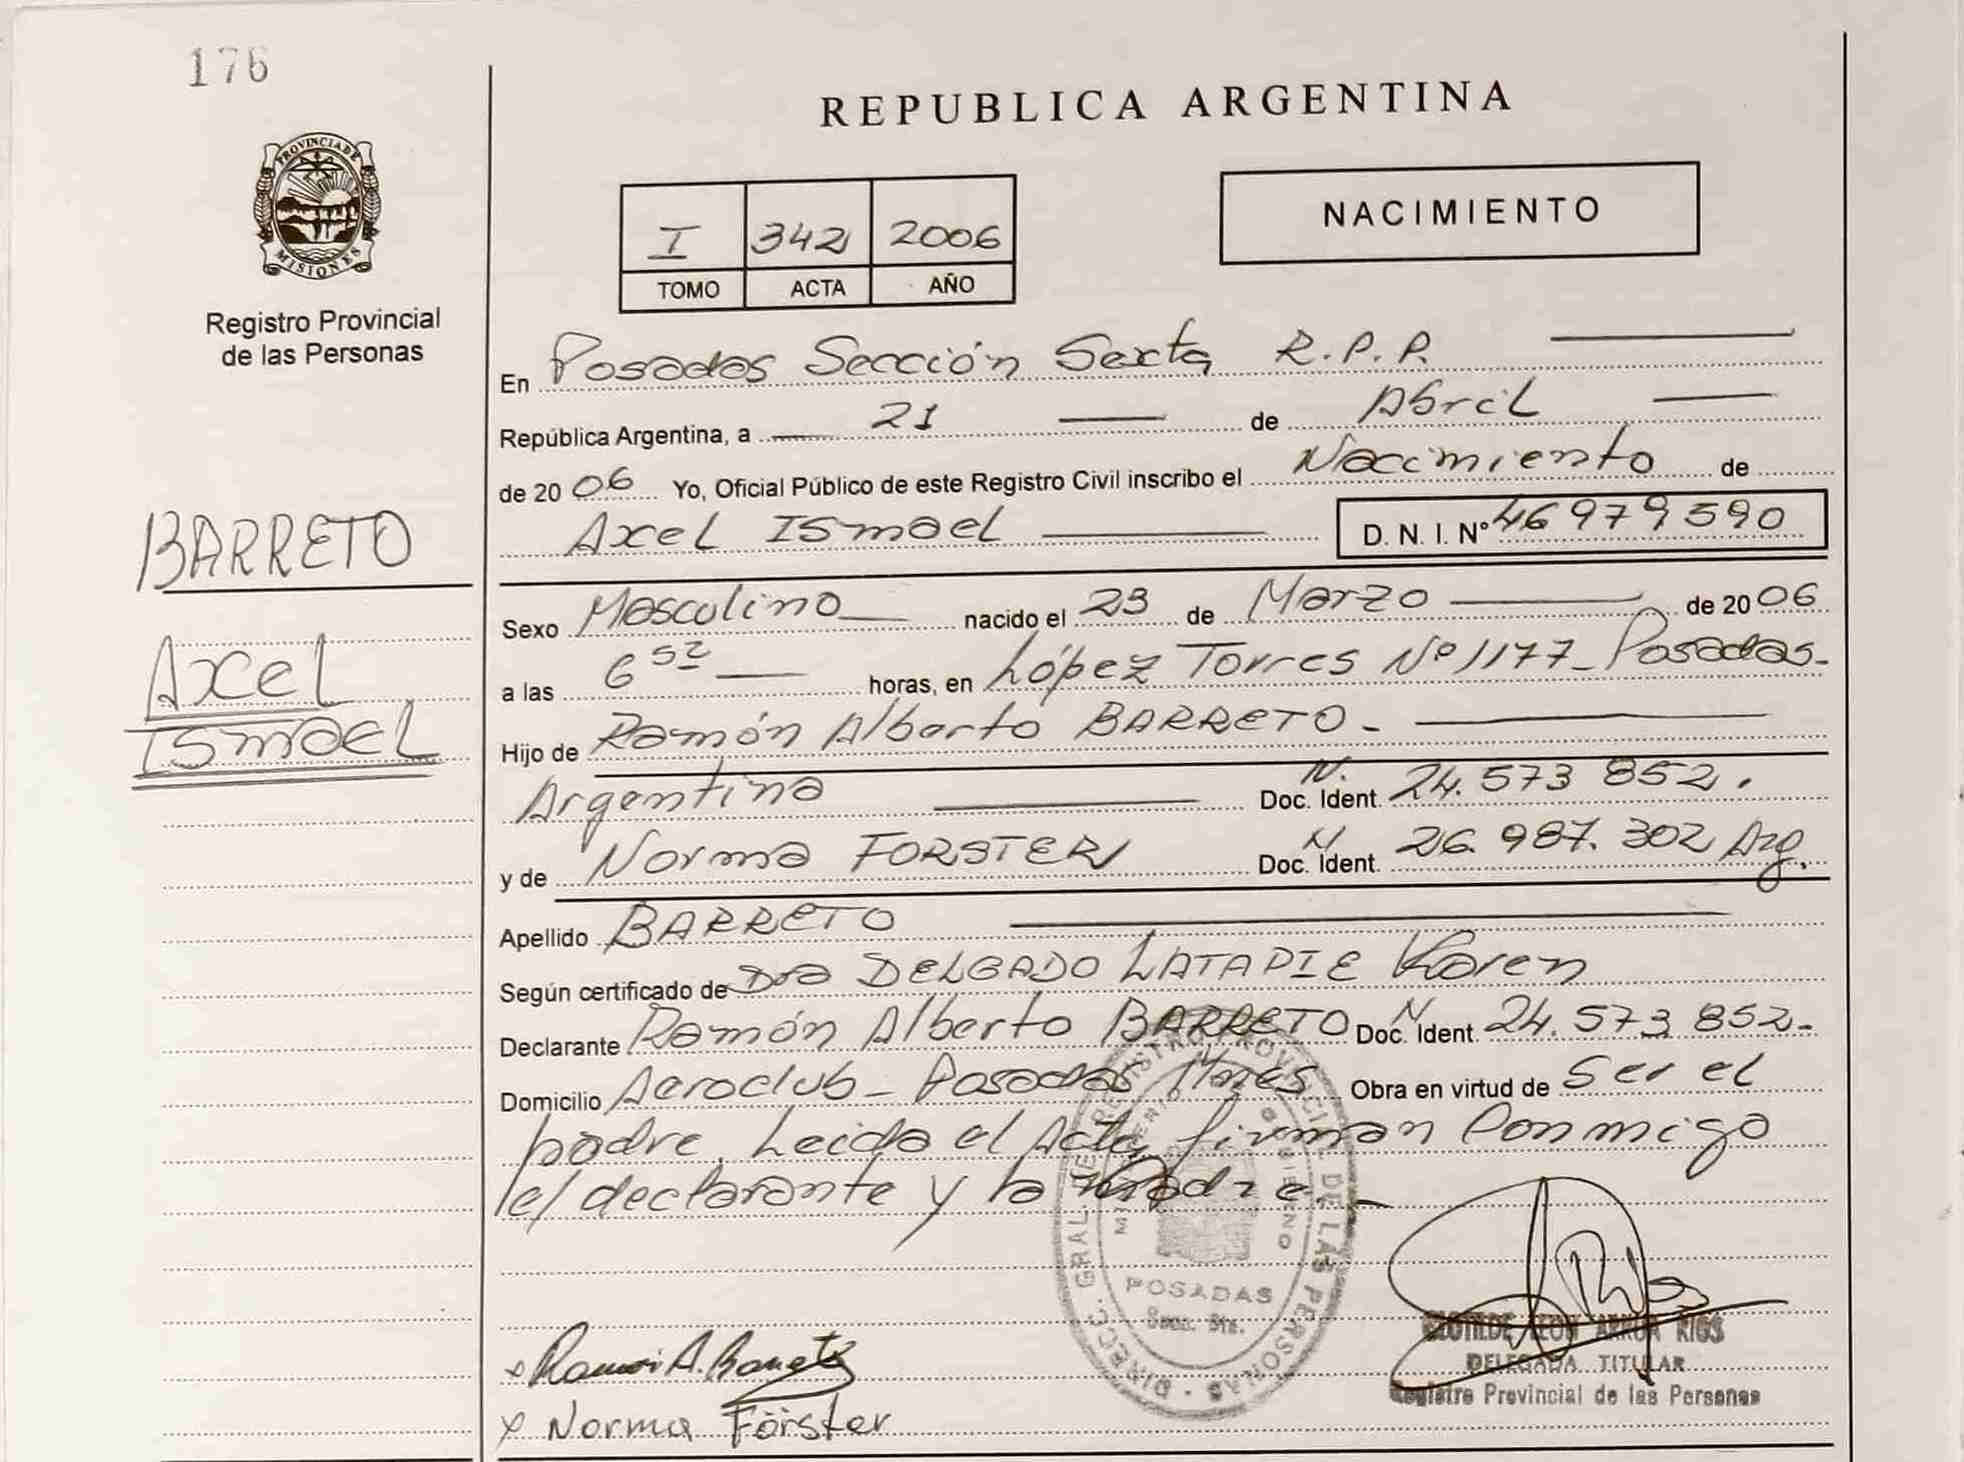 176
PROVINCIA DE
MISIONES
Registro Provincial
de las Personas
BARRETO
Axel
Ismael
REPUBLICA ARGENTINA
I 342 2006
TOMO ACTA AÑO
NACIMIENTO
En Posadas Sección Sexta R.P.P.
República Argentina, a 21 de Abril
de 2006 Yo, Oficial Público de este Registro Civil inscribo el Nacimiento de
Axel Ismael D. N. I. Nº 46979590
Sexo Masculino nacido el 23 de Marzo de 2006
a las 6 52 horas, en López Torres Nº 1177 - Posadas.
Hijo de Ramón Alberto BARRETO -
Argentina N. Doc. Ident. 24.573 852.
y de Norma FORSTER N Doc. Ident. 26.987.302 Arg.
Apellido BARRETO
Según certificado de Dra DELGADO LATAPIE Karen
Declarante Ramón Alberto BARRETO N Doc. Ident. 24.573 852-
Domicilio Aeroclub - Posadas Mnes Obra en virtud de Ser el
padre. Leida el Acta, firman Conmigo
el declarante y la madre. -
DIRECC. GRAL. DEL REGISTRO PROVINCIAL DE LAS PERSONAS
MINISTERIO GOBIERNO
POSADAS
Secc. 6ta.
x Ramón A. Barreto
x Norma Förster
CLOTILDE LEON ARRUA RIOS
DELEGADA TITULAR
Registro Provincial de las Personas